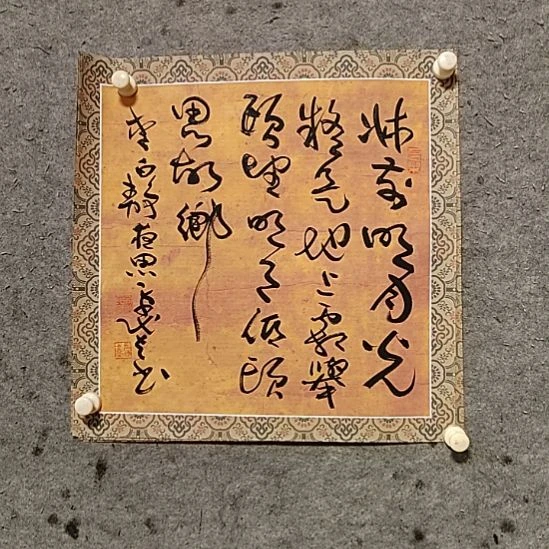 床前明月光
疑是地上霜舉
頭望明月低頭
思故鄉
李白靜夜思